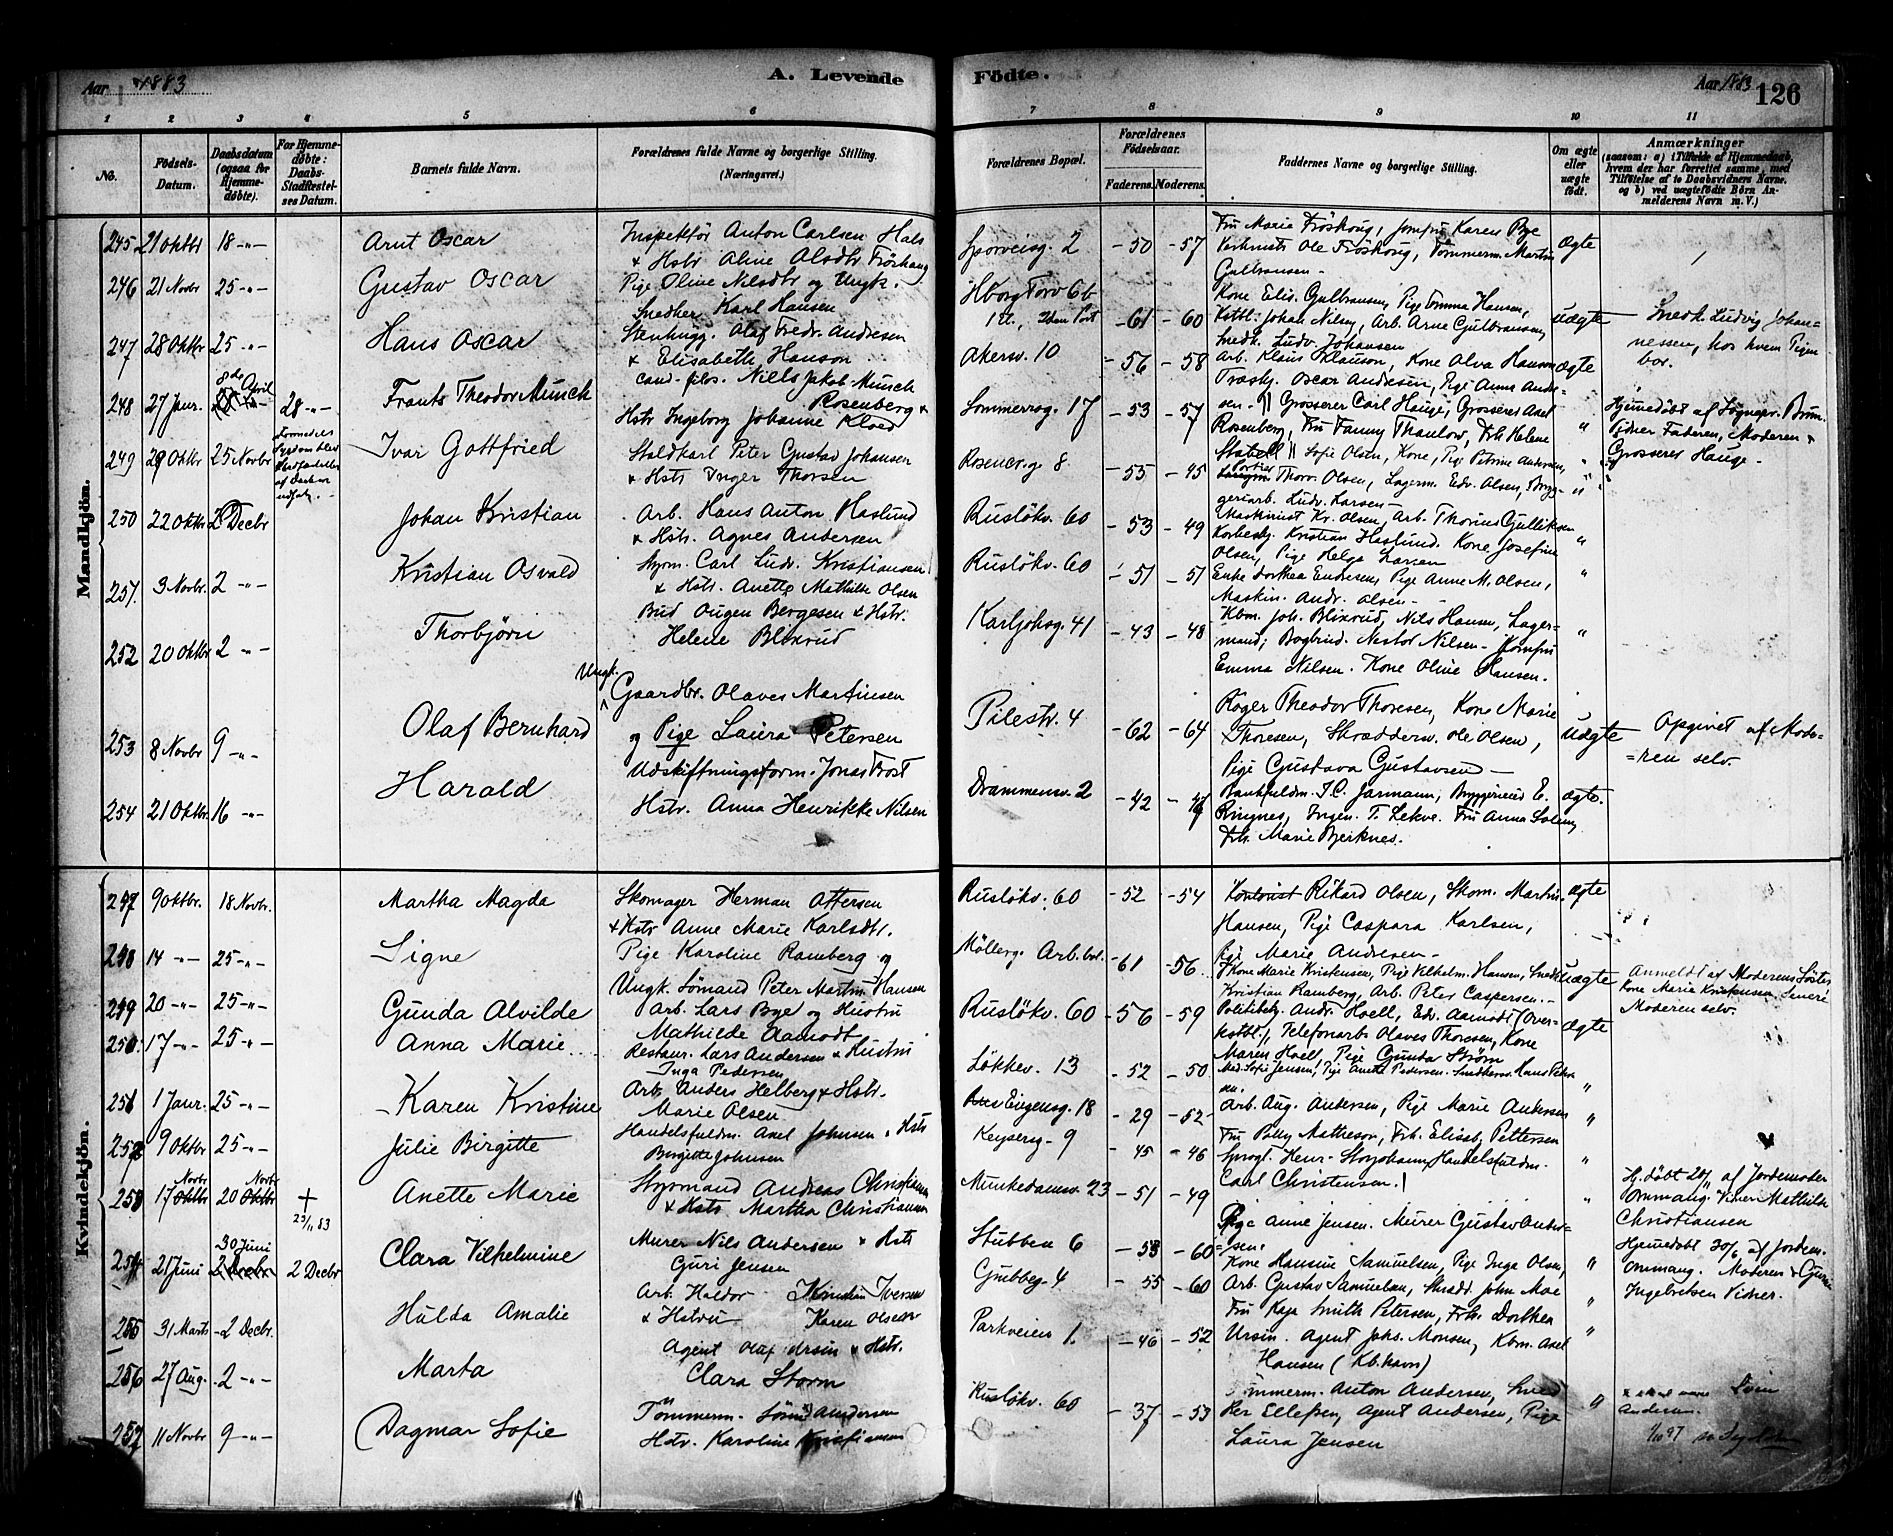 Aar 1883
A. Levende Födte.
Aar 1883 126
1 2 3 4 5 6 7 8 9 10 11
No.
Födsels-Datum.
Daabsdatum (ogsaa for Hjemme-döbte).
For Hjemme-døbte: Daabs-Stadfæstel-ses Datum.
Barnets fulde Navn.
Forældrenes fulde Navne og borgerlige Stilling. (Næringsvei.)
Forældrenes Bopæl.
Forældrenes Födselsaar.
Faderens. Moderens.
Faddernes Navne og borgerlige Stilling.
Om ægte eller uægte födt.
Anmærkninger (saasom: a) i Tilfælde af Hjemmedaab, hvem der har forrettet samme, med Tilföielse af to Daabsvidners Navne. og b) ved uægtefödte Börn An-melderens Navn m. V.)
Mandkjön.
245 21 Oktbr 18 -"- Arnt Oscar
Inspektör Anton Carlsen Hals
& Hstr Aline Alsdtr Fröshaug
Sporveisg. 2 -50 -57
Fru Marie Fröshoug, Jomfru Karen Bye
Ole Fröshoug, Tömmerm. Martin
Gulbransen -
ægte
246 21 Novbr 25 -"- Gustav Oscar
Pige Oline Nilsdtr og Ungk.
Snedker Karl Hansen
Hborg Torv 6b
-61 -60
Kone Elis. Gulbransen, Pige Emma Hansen,
Johan Nilsen, Arb. Arne Gulbransen,
Snedk. Ludv. Johansen
uægte
Snedk. Ludvig Johan=
nessen, hos hvem Pigen
bor.
247 28 Oktbr 25 -"- Hans Oscar
Stenhugg. Olaf Fredr. Andresen
& Elisabeth Hanson
Akersv. 10 -56 -58
Arb. Klaus Klauson, Kone Alva Hanson
Træskj. Oscar Andresen, Pige Anna Andre-
sen.
ægte
248 27 Janr. 8de April 28 -"- Frants Theodor Munck
Cand. filos. Niels Jakob Munch
Rosenberg &
Hstr Ingeborg Johanne Kloed
Sommerrog. 17 -53 -57
Grosserer Carl Hauge, Grosserer Axel
Rosenberg, Fru Fanny Thaulow, Frk Helene
"
Hjemedöbt af Sognepr. Bruun.
Vidner Faderen, Moderen &
Grosserer Hauge.
249 29 Oktbr 25 Novbr Ivar Gottfried
Staldkarl Peter Gustav Johansen
& Hstr Inger Thorsen
Rosencr.g. 8 -55 -45
Sofie Olsen, Kone, Pige Petrine Andersen,
Portier Thorv. Olsen, Lagerm. Edv. Olsen, Bryg-
geriarb. Ludv. Larsen -
"
250 22 Oktbr 2 Decbr Johan Kristian
Arb. Hans Anton Haslund
& Hstr. Agnes Andersen
Ruslökv. 60 -53 -49
Maskinist Kr. Olsen, Arb. Thorius Gulliksen
Kristian Haslund. Kone Josefine
Olsen, Pige Helga Larsen
"
251. 3 Novbr. 2 -"- Kristian Osvald
Styrm. Carl Ludv. Kristiansen
& Hstr. Anette Mathilde Olsen
Ruslökv. 60 -51 -51
Enke Dorthea Endresen, Pige Anne M. Olsen,
Maskin. Andr. Olsen -
"
252 20 Oktbr 2 -"- Thorbjörn
Bud Ougen Bergesen & Hstr.
Helene Blixrud
Karljohsg. 41 -43 -48
Kbm. Joh. Blixrud, Nils Hansen, Lager=
mand; Bogbind. Nestor Nilsen - Jomfru
Emma Nilsen. Kone Oline Hansen.
"
253 8 Novbr 9 -"- Olaf Bernhard
Ungk.
Gaardbr. Olaves Martinsen
og Pige Laura Petersen
Pilestr. 4 -62 -64
Theodor Thoresen, Kone Marie
Thoresen, Skrædderm. Ole Olsen,
Pige Gustava Gustavsen -
uægte
Opgivet af Mode=
=ren selv.
254 21 Oktbr. 16 -"- Harald
Udskiftningsform. Jonas Frost
Hstr. Anna Henrikke Nilsen
Drammensv. 2 -42
Bankfuldm. J. C. Jarmann, Bryggerieier E.
Ringnes, Ingen. T. Lekve. Fru Anna Solem,
Frk. Marie Bjerknes.
ægte.
Kvindekjön.
247 9 Oktbr. 18 Novbr. Martha Magda
Skomager Herman Ottersen
& Hstr Anne Marie Karlsdtr.
Ruslökv. 60 -52 -54
Rikard Olsen, Skom. Martin
Hansen, Pige Caspara Karlsen,
Pige Marie Andresen -
ægte
248 14 -"- 25 -"- Signe
Pige Karoline Ramberg og
Ungk. Sömand Peter Martin Hansen
Möllerg. Arb. bol. -61 -56
Kone Marie Kristensen, Pige Vilhelm. Hansen, Snedk
Kristian Ramberg, Arb. Peter Caspersen. -
uægte
Anmeldt af Moderens Söster
Kone Marie Kristensen. Senere
Moderen selv.
249 20 -"- 25 -"- Gunda Alvilde
Arb. Lars Bye og Hustru
Mathilde Aamodt
Ruslökv. 60 -56 -59
Politibetj. Andr. Hoell, Edv. Aamodt (Over-
Telefonarb. Olaves Thoresen, Kone
Maren Hoell, Pige Gunda Ström
ægte
250. 17 -"- 25 -"- Anna Marie
Restaur. Lars Andersen & Hustru
Inga Pedersen
Lökkev. 13 -52 -50
Sofie Jensen, Pige Anette Pedersen. Snedkersv. Hans Peter
sen.
"
251 1 Janr. 25 -"- Karen Kristine
Arb. Anders Helberg & Hstr.
Marie Olsen
Eugensg. 18 -29 -52
Arb. Aug. Andersen, Pige Marie Andersen
"
252 9 Oktbr 25 -"- Julie Birgitte
Handelsfuldm. Axel Johnsen & Hstr
Birgitte Johnsen
Keyserg. 9 -45 -46
Fru Polly Matheson, Frk. Elisab. Pettersen
Henr. Storjohann, Handelsfuldm.
Carl Christensen.
"
253 17 Novbr 20 Novbr + 23/11 83 Anette Marie
Styrmand Andreas Christiansen
& Hstr Martha Christiansen
Munkedamsv. 23 -51 -49
"
Hj. döbt 20/11 af Jordemoder
Ommang. Vidner Mathilde
Christiansen
254 21 Juni 30 Juni 2 Decbr Clara Vilhelmine
Murer Nils Andersen & Hstr
Guri Jensen
Stubben 6 -53 -60
Pige Anne Jensen. Murer Gustav Ander=
=sen.
"
Hjemedöbt 30/6 af Jordem.
Ommang. Moderen &
Ingebretsen Vidner.
255 31 Marts 2 Decbr. Hulda Amalie
Arb. Haldor Iversen
& Hstru Karen Olsen
Grubbeg. 4 -55 -60
Kone Hansine Samuelsen, Pige Inga Olsen,
Arb. Gustav Samuelsen, Skrædd. John Moe
"
256 27 Aug. 2 -"- Marta
Agent Olaf Ursin & Hstr.
Clara Storm
Parkveien 1. -46 -52
Fru Kaja Smith Petersen, Frk. Dorthea
Ursin. Agent Johs. Monsen, Kbm. Axel
Hansen (Kb.havn)
"
257 11 Novbr 9 -"- Dagmar Sofie
Tömmerm. Sörn Andersen
Hstr. Karoline Kristiansen
Ruslökv. 60 -37 -53
Tömmerm. Anton Andersen, Sned
ker Ellefsen, Agent Andersen, Pige
Laura Jensen
"
Andersen.